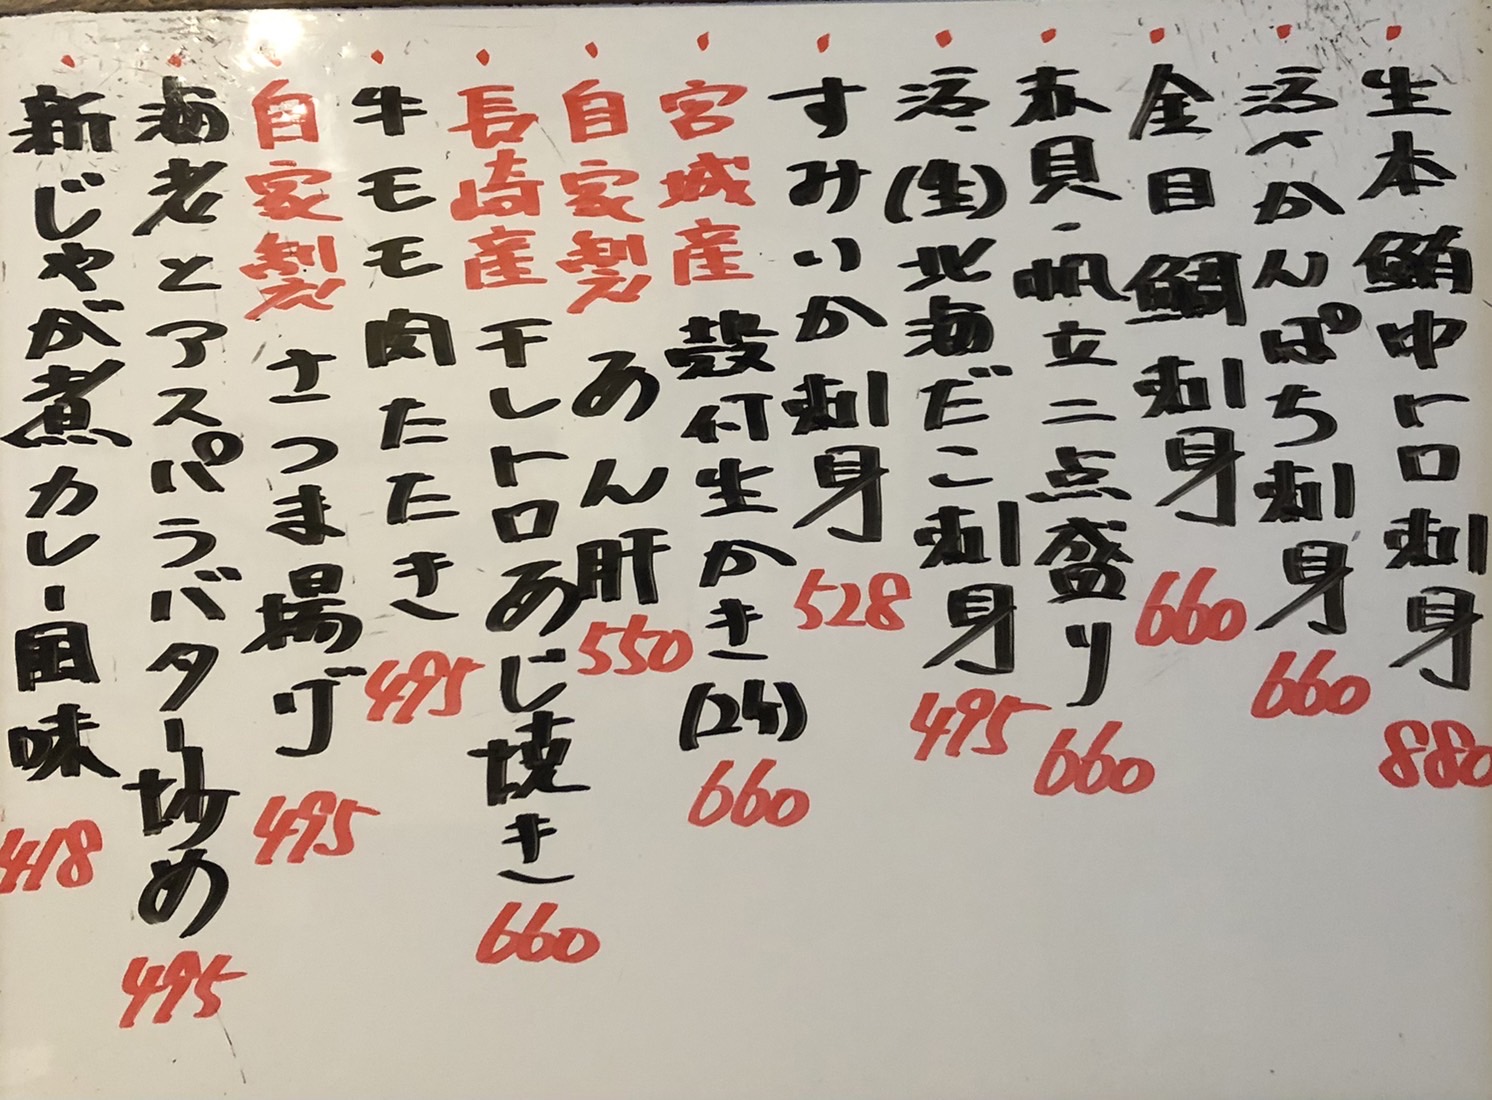 生本鮪中トロ刺身 880
活〆かんぱち刺身 660
金目鯛刺身 660
赤貝・帆立二点盛り 660
活(生)北海だこ刺身 495
すみいか刺身 528
宮城産 殻付生かき(2ケ) 660
自家製 あん肝 550
長崎産 干しトロあじ焼き 660
牛モモ肉たたき 495
自家製 さつま揚げ 495
海老とアスパラバター炒め 495
新じゃが煮カレー風味 418